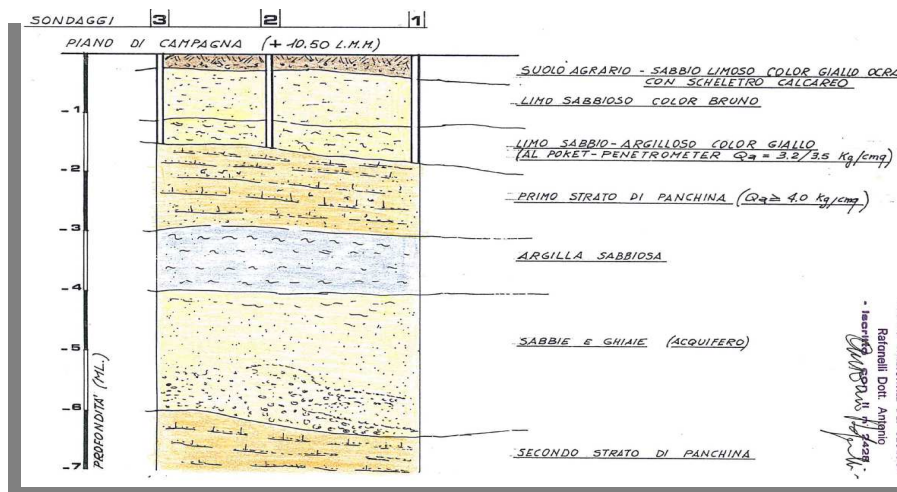 SONDAGGI 3 2 1
PIANO DI CAMPAGNA (+ 10.50 L.M.M.)
SUOLO AGRARIO - SABBIO LIMOSO COLOR GIALLO OCRA
CON SCHELETRO CALCAREO
LIMO SABBIOSO COLOR BRUNO
LIMO SABBIO-ARGILLOSO COLOR GIALLO
(AL POKET-PENETROMETER Qa = 3.2/3.5 Kg/cmq)
PRIMO STRATO DI PANCHINA (Qa ≥ 4.0 Kg/cmq)
ARGILLA SABBIOSA
SABBIE E GHIAIE (ACQUIFERO)
SECONDO STRATO DI PANCHINA
-1
-2
-3
-4
-5
-6
-7
PROFONDITA' (ML.)
Rafanelli Dott. Antonio
Iscritto con il n° 2428